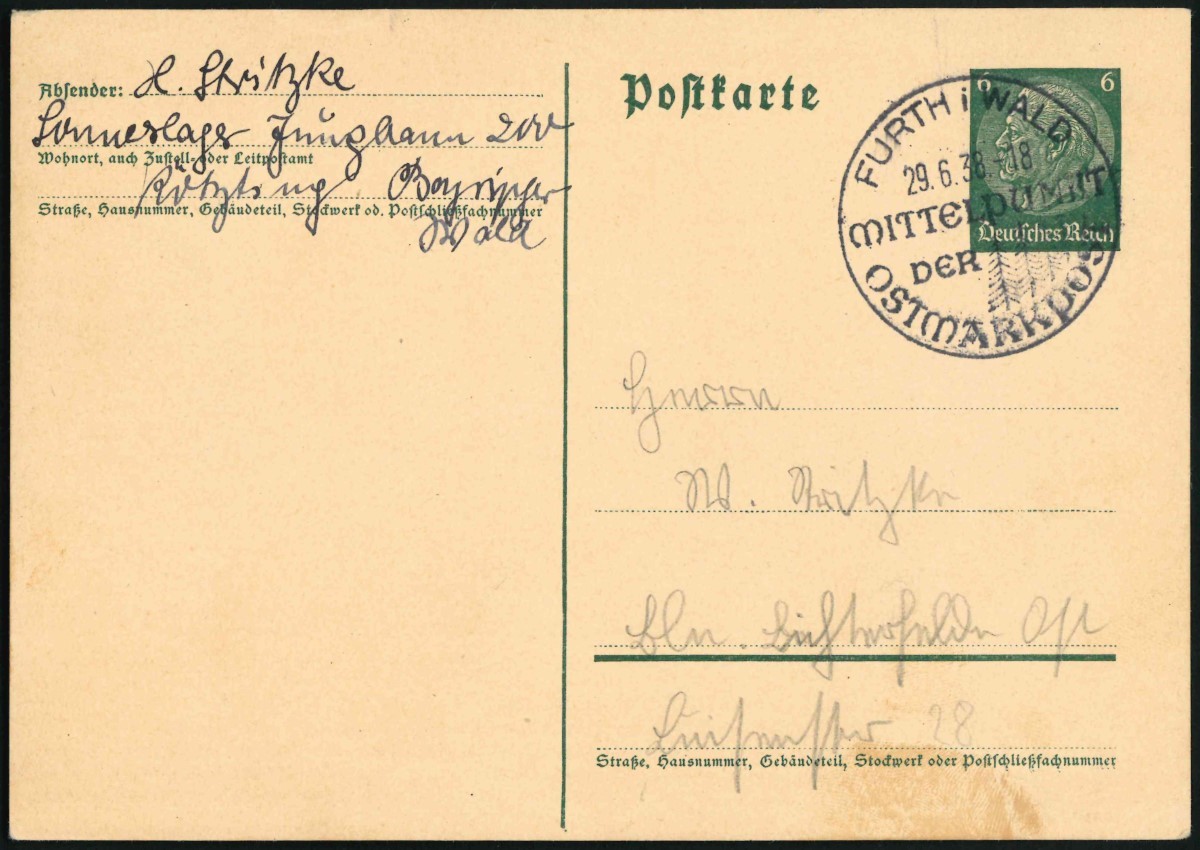 Absender: H. Stritzke
Sommerlager Jungbann 200
Wohnort, auch Zustell- oder Leitpostamt
Kötzting Bayrischer
Straße, Hausnummer, Gebäudeteil, Stockwerk od. Postschließfachnummer
Wald
Postkarte
6 6
Deutsches Reich
FURTH i WALD
29.6.38. 18
MITTELPUNKT
DER
OSTMARKPOST
Herrn
W. Stritzke
Bln. Lichterfelde Ost
Luisenstr 28
Straße, Hausnummer, Gebäudeteil, Stockwerk oder Postschließfachnummer